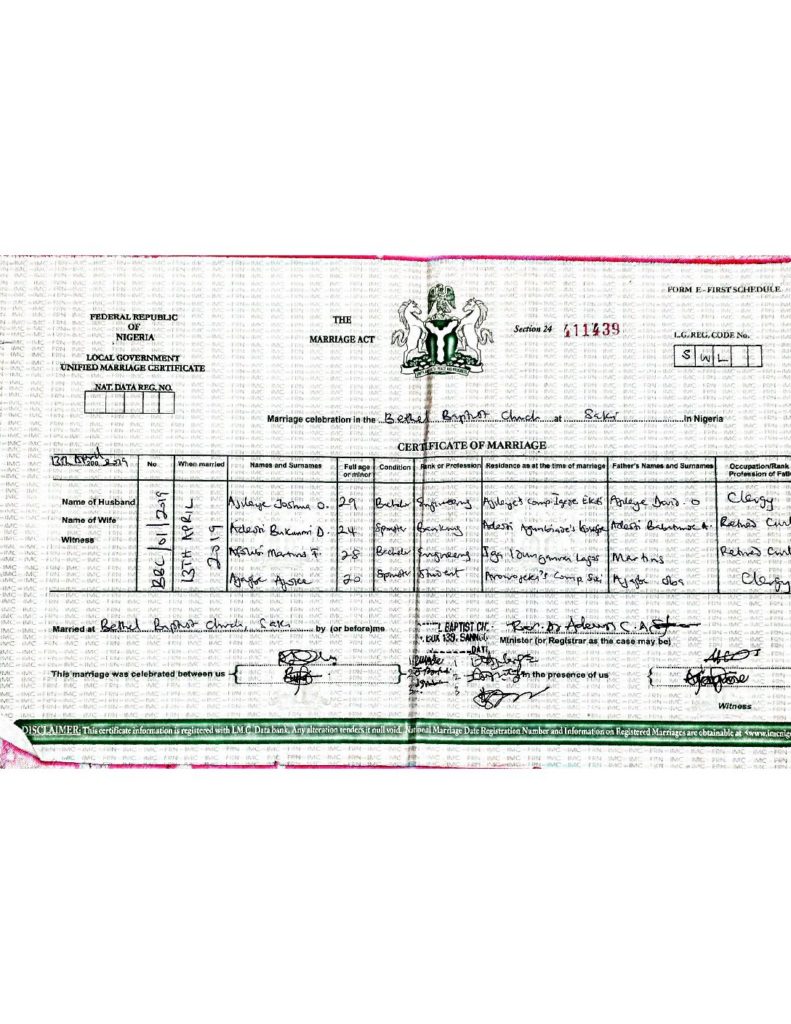 FORM E - FIRST SCHEDULE
FEDERAL REPUBLIC
OF
NIGERIA
THE
MARRIAGE ACT
Section 24 411439
L.G. REG. CODE No.
S W L
LOCAL GOVERNMENT
UNIFIED MARRIAGE CERTIFICATE
NAT. DATA REG. NO.
Marriage celebration in the Bethel Baptist Church at Saki in Nigeria
CERTIFICATE OF MARRIAGE
13th April 2019
No When married Names and Surnames Full age or minor Condition Rank or Profession Residence as at the time of marriage Father's Names and Surnames Occupation/Rank Profession of
BBC/01/2019
13TH APRIL 2019
Name of Husband Ajileye Joshua O. 29 Bachelor Engineering Ajileye's Comp. Ekiti Ajileye David O Clergy
Name of Wife Adesti D. 24 Spinster Banking Adesti A. Retired
Witness Martins F. 28 Bachelor Engineering Lagos Martins Retired
20 Spinster Student Comp. Saki Clergy
Married at Bethel Baptist Church, Saki by (or before)me
BAPTIST CH. Rev. Dr C. A.
Minister (or Registrar as the case may be)
BOX 139,
This marriage was celebrated between us in the presence of us
Witness
DISCLAIMER: This certificate information is registered with I.M.C. Data bank. Any alteration renders it null void. National Marriage Date Registration Number and Information on Registered Marriages are obtainable at